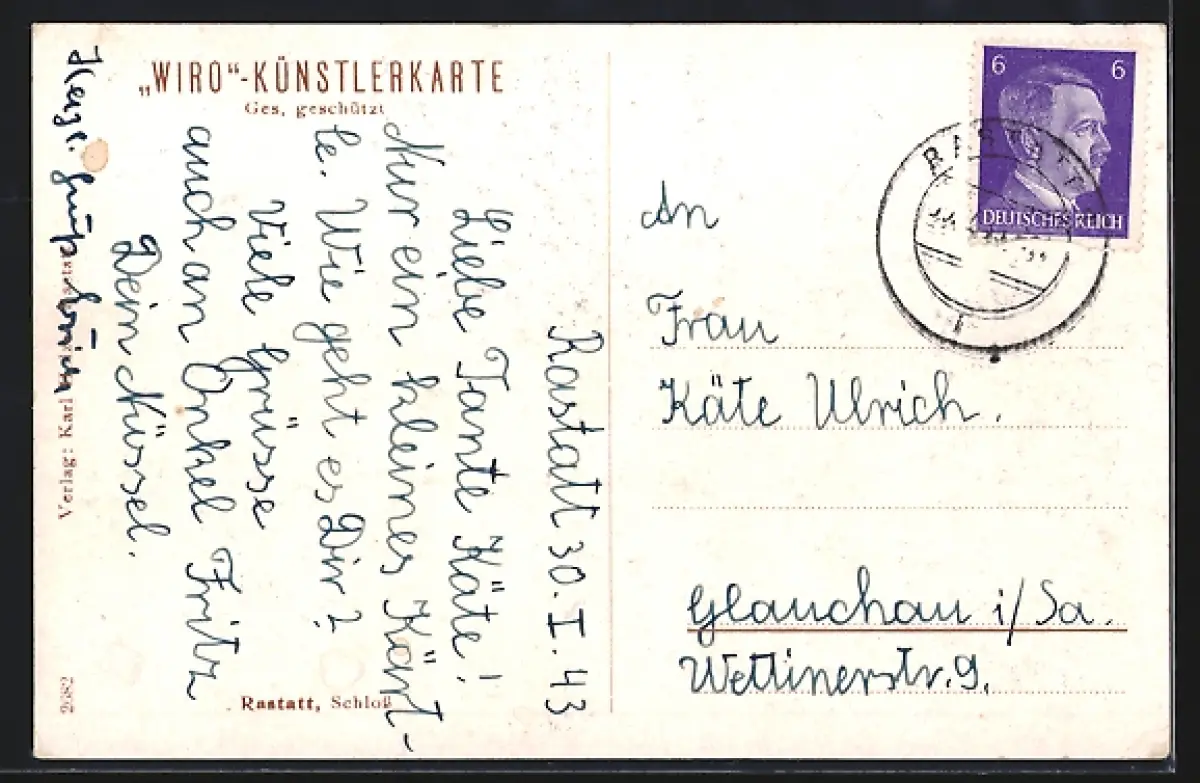 „WIRO“-KÜNSTLERKARTE
Ges. geschützt
Rastatt 30. I. 43
Liebe Tante Käte!
Nur ein kleines Kärt-
le. Wie geht es Dir?
Viele Grüsse
auch an Onkel Fritz
Dein Nüssel.
Verlag: Karl
2682
Rastatt, Schloß
6 6
DEUTSCHES REICH
RASTATT
An
Frau
Käte Ulrich.
Glauchau i/Sa.
Wettinerstr. 9.